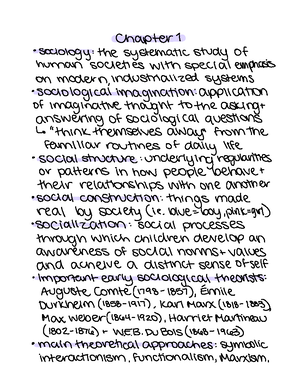 Chapter 1
• sociology: the systematic study of
human societies with special emphasis
on modern, industrialized systems
• sociological imagination: application
of imaginative thought to the asking +
answering of sociological questions
↳ "think themselves away" from the
familiar routines of daily life
• social structure: underlying regularities
or patterns in how people behave +
their relationships with one another
• social construction: things made
real by society (i.e. blue=boy, pink=girl)
• socialization: social processes
through which children develop an
awareness of social norms + values
and acheive a distinct sense of self
• important early sociological theorists:
Auguste, Comte (1798-1857), Émile
Durkheim (1858-1917), Karl Marx (1818-1883),
Max Weber (1864-1920), Harriet Martineau
(1802-1876) + W.E.B. DuBois (1868-1963)
• main theoretical approaches: symbolic
interactionism, functionalism, Marxism,